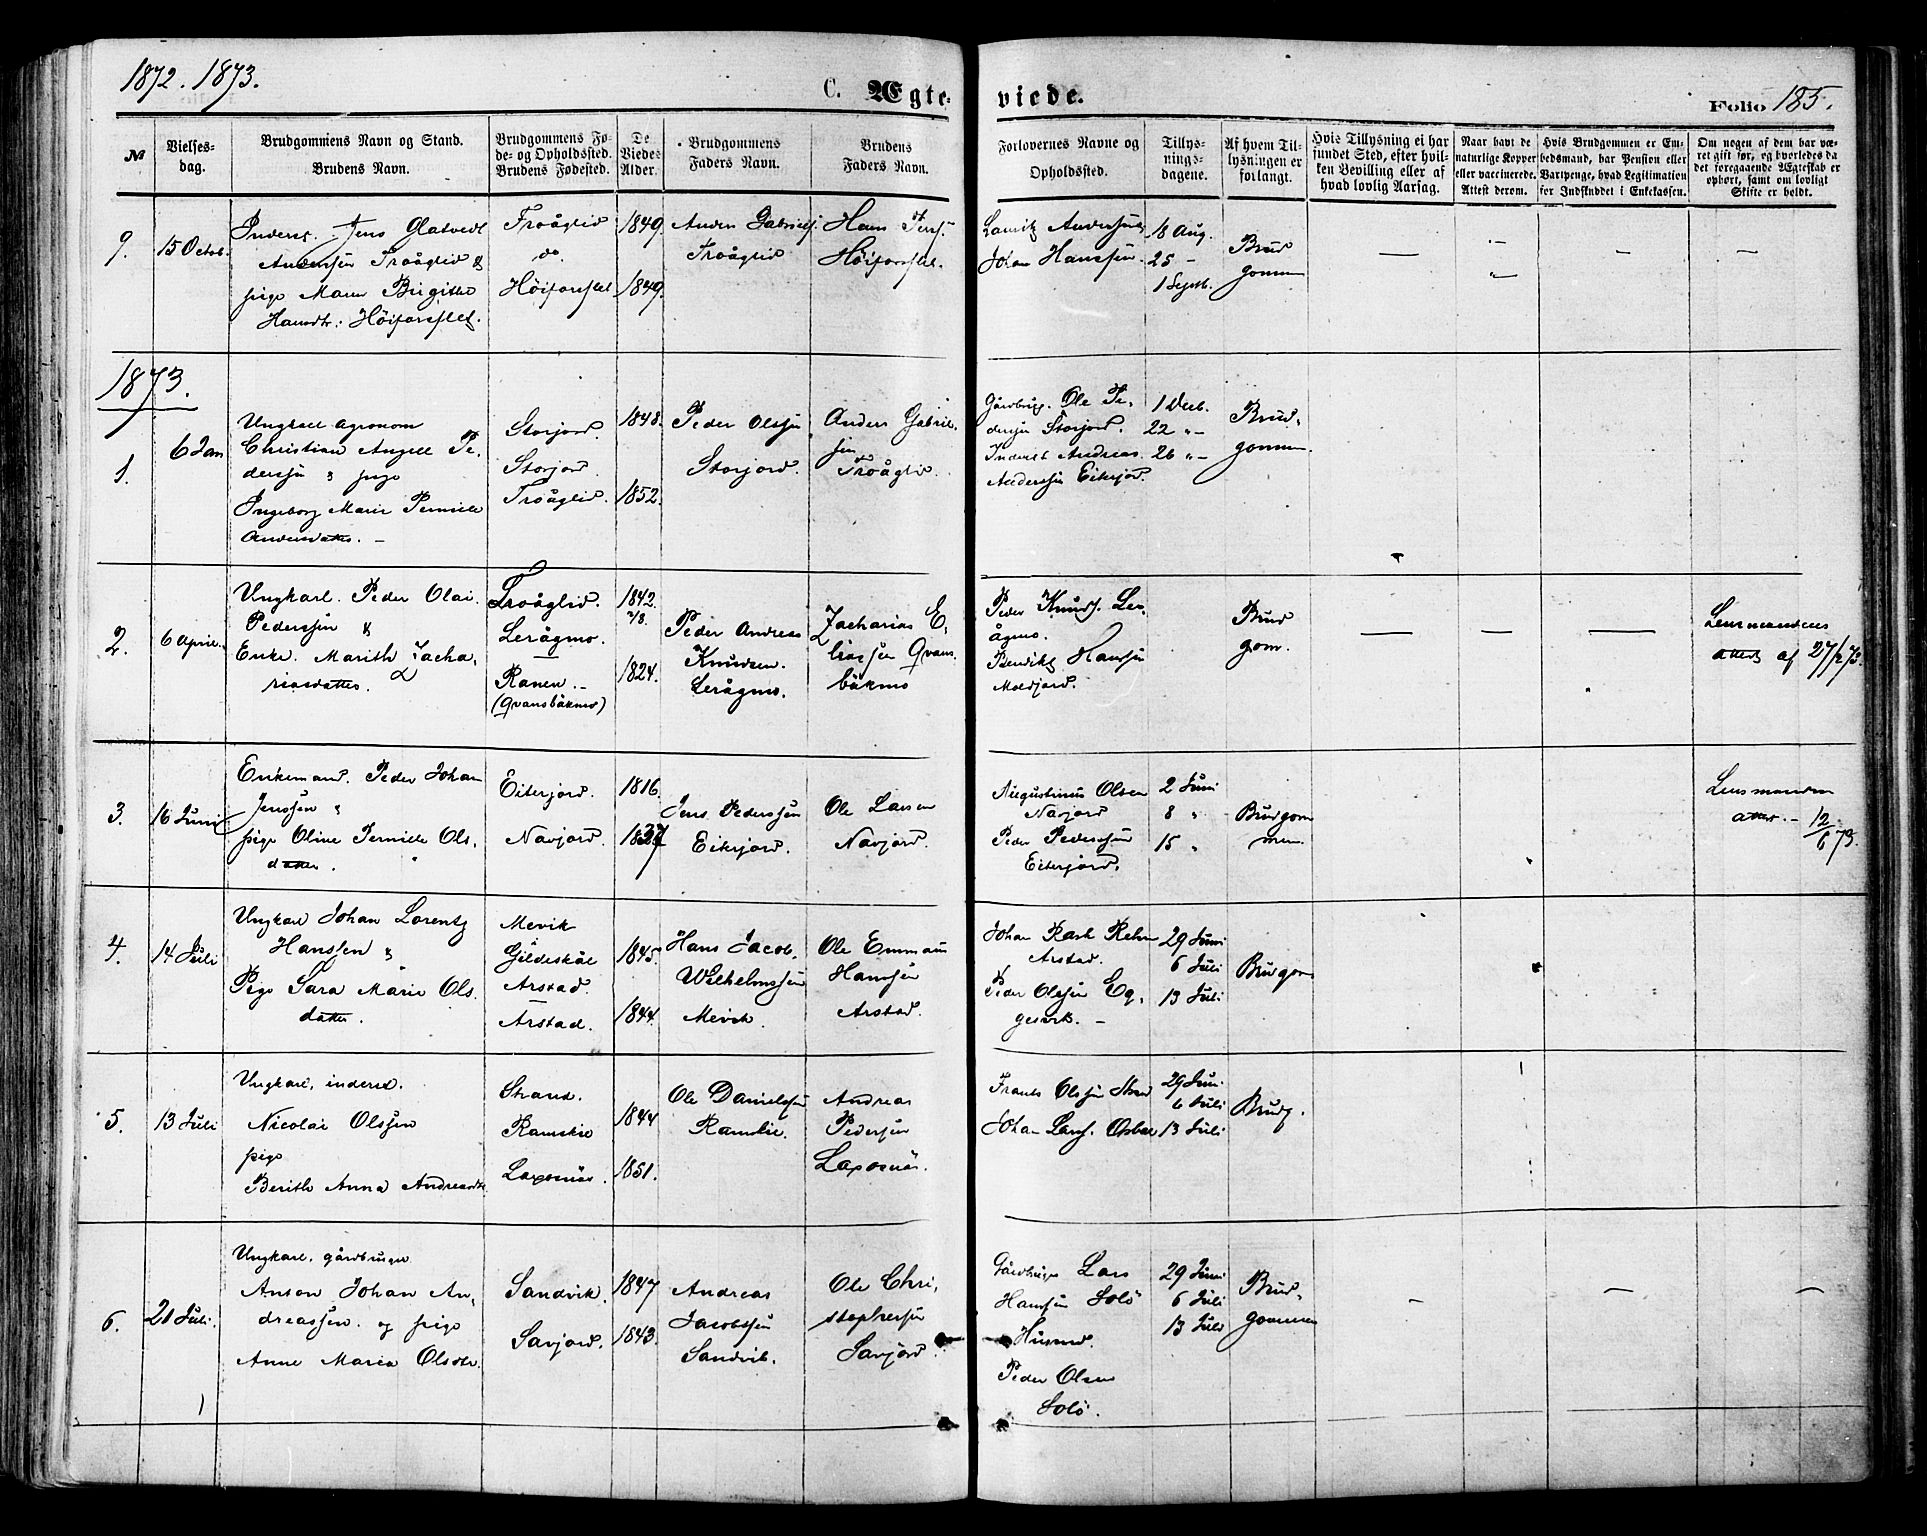 1872. 1873.
C. Ægte-
viede.
Folio 185.
№
Vielses-
dag.
Brudgommens Navn og Stand.
Brudens Navn.
Brudgommens Fø-
de- og Opholdssted.
Brudens Fødested.
De
Viedes
Alder.
Brudgommens
Faders Navn.
Brudens
Faders Navn.
Forlovernes Navne og
Opholdssted.
Tillys-
nings-
dagene.
Af hvem Til-
lysningen er
forlangt.
Hvis Tillysning ei har
fundet Sted, efter hvil-
ken Bevilling eller af
hvad lovlig Aarsag.
Naar havt de
naturlige Kopper
eller vaccinerede.
Attest derom.
Hvis Brudgommen er Em-
bedsmand, har Pension eller
Vartpenge, hvad Legitimation
for Indskuddet i Enkekassen.
Om nogen af dem har væ-
ret gift før, og hvorledes da
det foregaaende Ægteskab er
ophørt, samt om lovligt
Skifte er holdt.
9.
15 Octob.
Inders. Jens Olatvedt
Anderssen Troåglid &
pige Maren Birgitte
Hansdtr: Höiforsflet.
Troåglid
do.
Höiforsflet
1849.
1849.
Anders Gabriels.
Troåglid
Hans Jens.
Höiforsflet.
Lauritz Anderssen
Johan Hanssen.
18 Aug.
25 -
1 Septb.
Brud
gommen
— „ — —
„
1873.
1.
6 Jan
Ungkarl agronom
Christian Angell Pe-
derssen & pige
Ingeborg Marie Pernille
Andersdatter. -
Storjord.
Storjord.
Troåglid.
1848.
1852.
Peder Olssen
Storjord.
Anders Gabriel-
sen
Troåglid.
Gårdbrug. Ole Pe-
derssen Storjord.
Inderst Andreas
Anderssen Eiterjord.
1 Decb.
22 „-
26 „-
Brud-
gommen
2.
6 April.
Ungkarl. Peder Olai
Pederssen &
Enke. Marith Zacha-
riasdatter.
Troåglid.
Leråmo.
Ranen. -
(Qvansbäkmo)
1842.
2/8.
1824.
Peder Andreas
Knudsen.
Leråmo.
Zacharias E-
liassen Qvans-
bäkmo
Peder Knuds. Ler-
ågmo.
Benrik Hanssen
Moldjord.
Brud
gom.
— — —
Lensmandens
attest af 27/2 73.
3.
16 Juni
Enkemand. Peder Johan
Jenssen &
pige Oline Pernille Ols-
datter.
Eiterjord.
Navjord.
1816.
1837
Jens Pederssen
Eiterjord.
Ole Larsen
Navjord.
Augustinus Olsen
Navjord
Peder Pederssen
Eiterjord.
2 Juni
8 „
15 „
Brudgom
men
Lensmanden
attest. - 12/6 73.
4.
14 Juli
Ungkarl Johan Lorentz
Hanssen &
Pige Sara Marie Ols-
datter.
Mevik
Gildeskål
Arstad.
Arstad.
1845.
1844.
Hans Jacob
Wilhelmssen
Mevik.
Ole Emmaus
Hanssen
Arstad.
Johan Rask Rehn
Arstad.
Peder Olssen Eg-
gesvik. -
29 Juni
6 Juli
13 Juli
Brudgom
5.
13 Juli
Ungkarl, inderst.
Nicolai Olssen
pige
Berith Anna Andreasdtr
Strand.
Ramskie
Laxosnäs.
1844
1851.
Ole Danielssen
Ramskie.
Andreas
Pederssen
Laxosnäs.
Frants Olssen Strand
Johan Lars. Osbak
29 Juni.
6 Juli
13 Juli
Brudg.
6.
20 Juli.
Ungkarl, gårdbruger
Anton Johan An-
dreassen. og pige
Anne Maria Olsdtr.
Sandvik.
Savjord.
1847
1843.
Andreas
Jacobssen
Sandvik.
Ole Chri-
stophersen
Savjord.
Gårdbruger Lars
Hanssen Solö
Husmd.
Peder Olsen
Solö.
29 Juni
6 Juli
13 Juli
Brud-
gommen
— — —